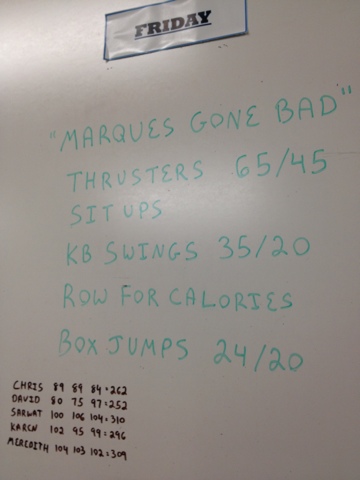 FRIDAY
"MARQUES GONE BAD"
THRUSTERS 65/45
SIT UPS
KB SWINGS 35/20
ROW FOR CALORIES
BOX JUMPS 24/20
CHRIS 89 89 84=262
DAVID 80 75 97=252
SARWAT 100 106 104=310
KAREN 102 95 99=296
MEREDITH 104 103 102=309